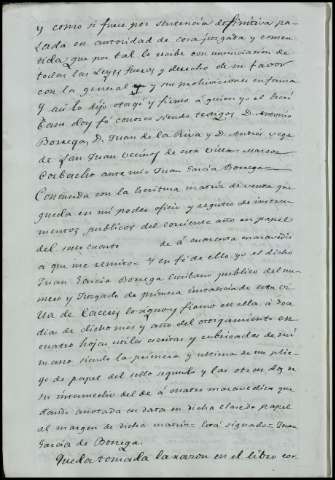 y como si fuese por sentencia definitiva pa-
sada en autoridad de cosa juzgada y consen-
tida, que por tal lo recibe con renunciacion de
todas las Leyes fueros y derecho de su favor
con la general y sus motivaciones en forma
Y asi lo dijo otorgó y firmó á quien yo el Escri-
bano doy fé conozco siendo testigos D. Antonio
Borrega, D. Juan de la Riva y D. Andrés Vega
de San Juan Vecinos de esta Villa = Marcos
Corbacho = ante mi = Juan Garcia Borrega =
Concuerda con la Escritura matriz de venta que
queda en mi poder oficio y registro de instru-
mentos publicos del corriente año en papel
del sello cuarto de á cuarenta maravedis
á que me remito = Y en fé de ello yo el dicho
Juan Garcia Borrega Escribano publico del nu-
mero y Juzgado de primera instancia de esta Vi-
lla de Caceres lo signo y firmo en ella á doce
dias de dicho mes y año del otorgamiento en
cuatro hojas utiles escritas y rubricadas de mi
mano siendo la primera y ultima de un plie-
go de papel del sello segundo y las otras dos
su intermedio del de á cuatro maravedises que-
dando anotada su saca en dicha clase de papel
al margen de dicha matriz = Está signado = Juan
Garcia de Borrega.
Queda tomada la razon en el libro cor-